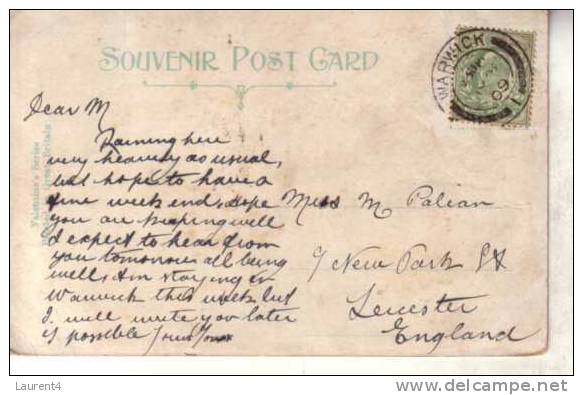 SOUVENIR POST CARD
WARWICK
09
Dear M
Raining here
very heavy as usual,
but hope to have a
fine week end, hope
you are keeping well
I expect to hear from
you tomorrow all being
well, Am staying in
Warwick this week but
I will write you later
if possible Yours Tom
Miss M Palian
9 New Park St
Leicester
England
Valentine's Series
Laurent4
www.delcampe.net